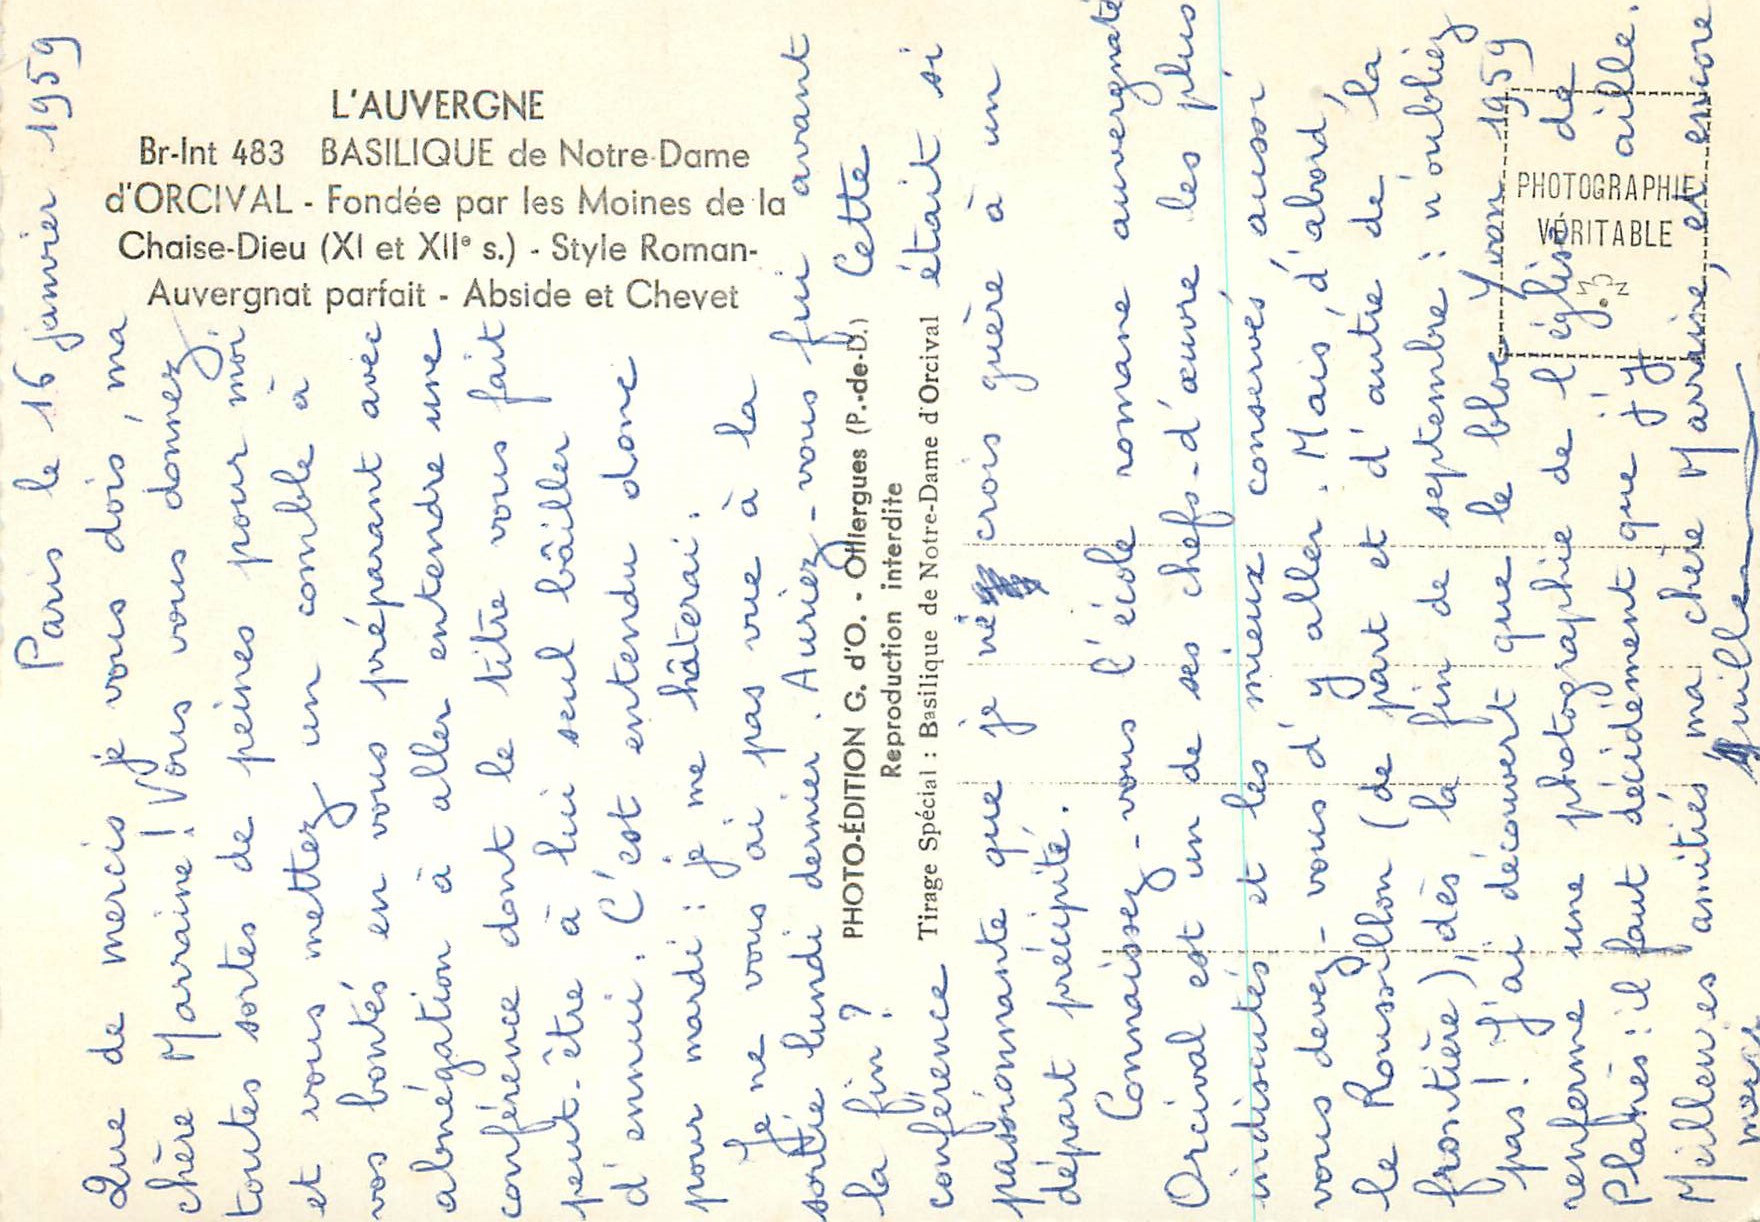 L'AUVERGNE
Br-Int 483 BASILIQUE de Notre-Dame
d'ORCIVAL - Fondée par les Moines de la
Chaise-Dieu (XI et XIIe s.) - Style Roman-
Auvergnat parfait - Abside et Chevet
PHOTO-ÉDITION G. d'O. - Olliergues (P.-de-D.)
Reproduction interdite
Tirage Spécial : Basilique de Notre-Dame d'Orcival
PHOTOGRAPHIE
VÉRITABLE
Paris le 16 janvier 1959
Que de mercis je vous dois, ma
chère Marraine ! Vous vous donnez
toutes sortes de peines pour moi
et vous mettez un comble à
vos bontés en vous préparant avec
abnégation à aller entendre une
conférence dont le titre vous fait
peut-être à lui seul bâiller
d'ennui. C'est entendu donc
pour mardi : je me hâterai.
Je ne vous ai pas vue à la
sortie lundi dernier. Auriez-vous fui avant
la fin ? Cette
conférence était si
passionnante que je ne crois guère à un
départ précipité.
Connaissez-vous l'école romane auvergnate
Orcival est un de ses chefs-d'œuvre les plus
indiscutés et les mieux conservés aussi
vous devez-vous d'y aller. Mais, d'abord,
le Roussillon (de part et d'autre de la
frontière), dès la fin de septembre : n'oubliez
pas ! J'ai découvert que le bloc Yvon 1959
renferme une photographie de l'église de
Planès : il faut décidément que j'y aille.
Meilleures amitiés ma chère Marraine, et encore
merci